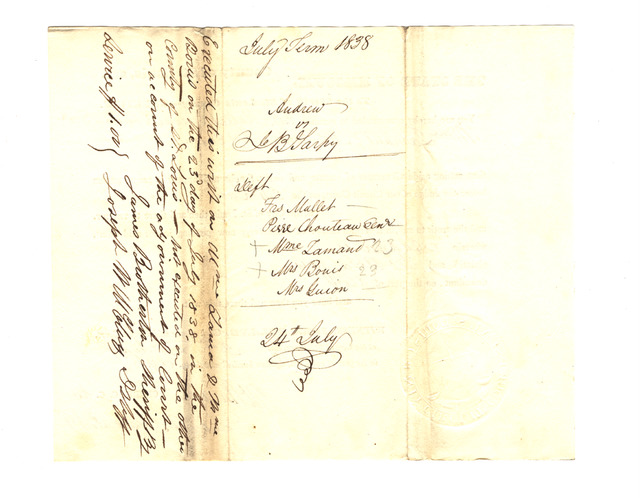 July Term 1838
Andrew
vs
L B Sarpy
Deft
Frs Mallet —
Pierre Chouteau Senr
+ Mme Lamant 23
+ Mrs Bouis 23
Mrs Guion —
24th July
Executed this writ on Mme Lama & Mme
Bouis on the 23d day of July 1838 in the
County of St Louis — not executed on the other
on account of the adjournment of Court —
James Brotherton Sheriff By
Service $1.00 } Joseph W Dpff